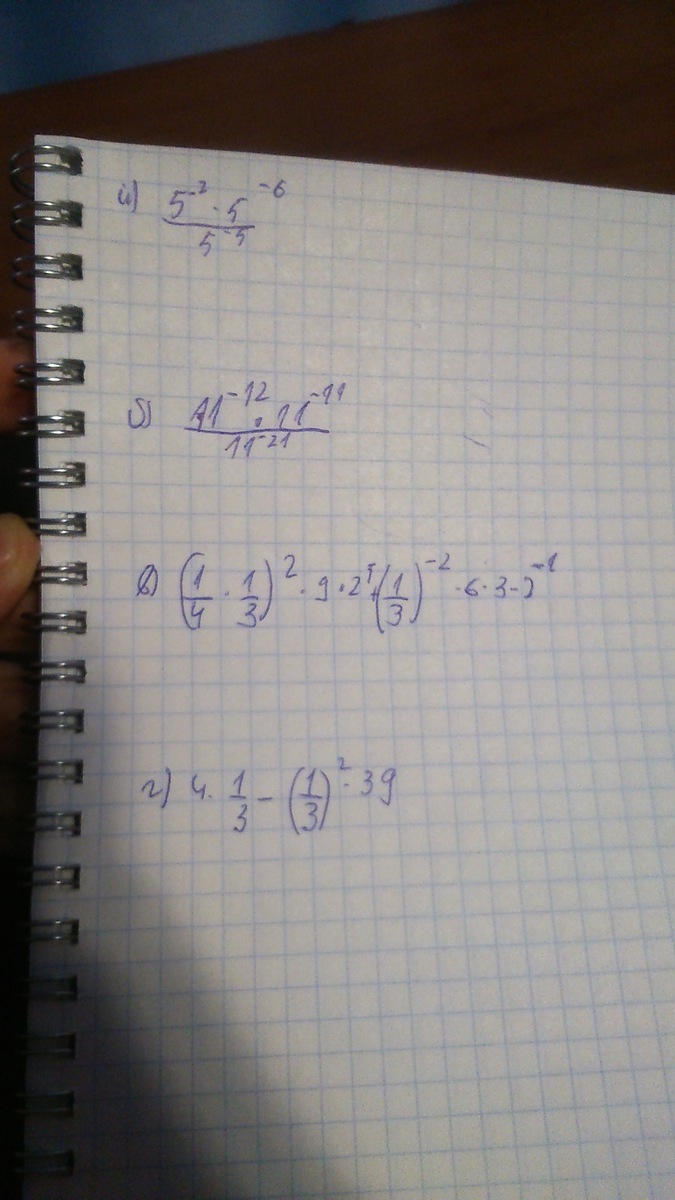 а) (5⁻² · 5⁻⁶) / 5⁻⁵
б) (11⁻¹² · 11⁻¹¹) / 11⁻²¹
в) (1/4 · 1/3)² · 9 · 2⁵ + (1/3)⁻² · 6 · 3 - 2⁻¹
г) 4 · 1/3 - (1/3)² · 39